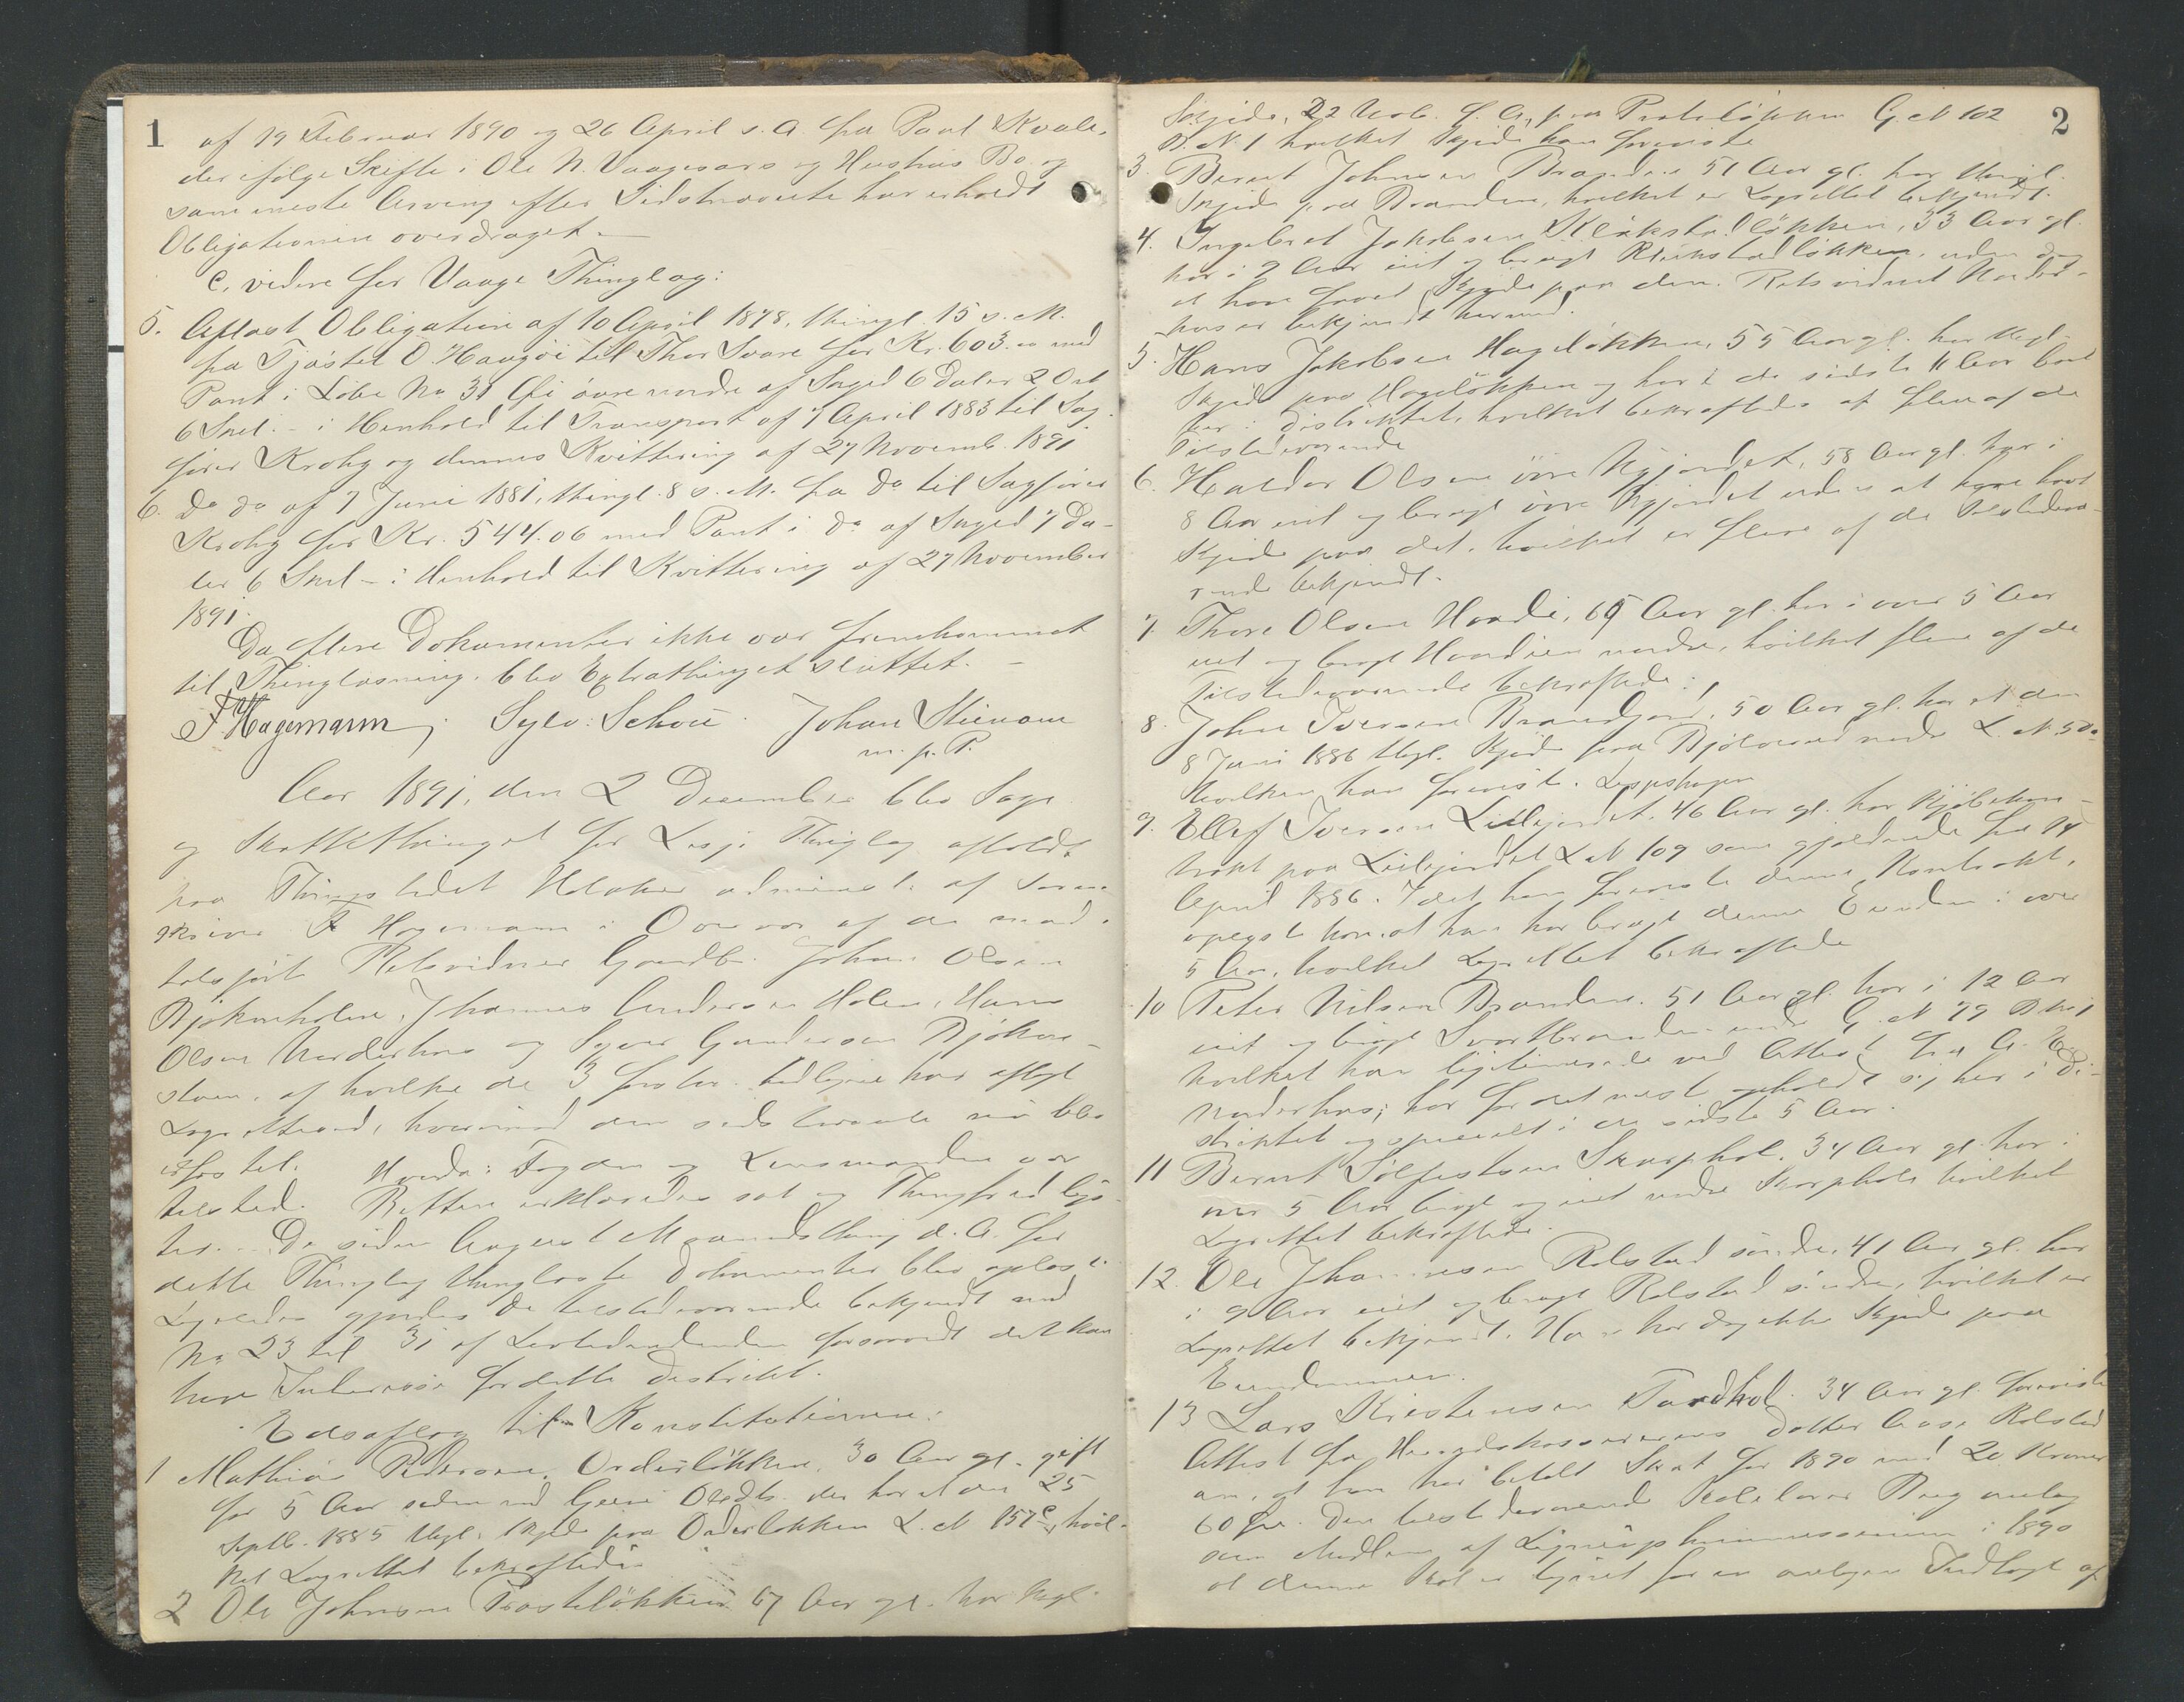 1
af 19 Februar 1890 og 26 April s. A. fra Paul Kvale,
der ifølge Skifte i Ole N. Vaagesars og Hustrus Bo og
som eneste Arving efter Sidstnævnte har erholdt
Obligationen overdraget. —
C, videre for Vaage Thinglag:
5. Aflæst Obligation af 10 April 1878, thingl. 15 s. M.
fra Tjøstel O. Haugøi til Thor Svare for Kr. 603.00 med
Pant i Løbe No 31 øvre nordre af Skyld 6 Daler 2 Ort
6 Skil. - i Henhold til Transport af 7 April 1883 til Sag-
fører Krohg og dennes Kvittering af 27 Novemb. 1891
6. do do af 7 Juni 1881, thingl. 8 s. M. fra do til Sagfører
Krohg for Kr. 544.06 med Pant i do af Skyld 7 Da-
ler 6 Skil - i Henhold til Kvittering af 27 November
1891.
Da flere Dokumenter ikke var fremkommet
til Thinglæsning, blev Extrathinget sluttet. -
F. Hagemann, Sylv: Schou. Johan Stuenæs
m. p. P.
Aar 1891, den 2 December blev Sage
og Skattethinget for Lesje Thinglag afholdt
paa Thingstedet Holaker administ. af Soren-
skriver F Hagemann i Overvær af de med-
tolgjørte Retsvidner Gaardbr. Johan Olsen
Bjøkneholen, Johannes Andersen Holen, Hans
Olsen Norderhus og Syver Gundersen Bjøkne-
stuen, af hvilke de 3 første tidligere har aflagt
Lagretteed, hvorimod den sidstnævnte nu blev
edfæstet. Fogden og Lensmanden var
tilstede. Retten erklæredes sat og Thingfred lyst
tes. - De siden August Maanedsthing d. A. for
dette Thinglag thinglæste Dokumenter blev oplæst.
Ligeledes gjordes de tilstedeværende bekjendt med
No 23 til 31 af Lovtidenden forsaavidt det kan
have Interesse for dette Distrikt.
Edsaflæg til Konstitutionen:
1 Mathias Pedersen Orderløkken, 30 Aar gl. gift
for 5 Aar siden med Olsdtr. der har den 25
Septb. 1885 thgl. Skjøde paa Orderløkken L. N 157 c, hvil-
ket Lagrettet bekræftede
2 Ole Johnsen Prosteløkken 67 Aar gl. har thgl.
2
Skjøde, 22 Novb. f. A. paa Prosteløkken G. N 102
B. N. 1 hvilket Skjøde han foreviste
3. Bernt Johnsen Branden 51 Aar gl. har thingl.
Skjøde paa Branden, hvilket er Lagrettet bekjendt.
4. Ingebret Jakobsen Kløkstadløkken, 33 Aar gl.
har i 9 Aar eiet og brugt Kløkstadløkken, uden dog
at have faaet Skjøde paa den. Retsvidnet Norder-
hus er bekjendt hermed.
5. Hans Jakobsen Hageløkken, 55 Aar gl. har thgl.
Skjøde paa Hageløkken og har i de sidste 11 Aar boet
her i Distriktet, hvilket bekræftedes af flere af de
Tilstedeværende
6. Haldor Olsen øvre Nygjordet, 58 Aar gl. har i
8 Aar eiet og brugt øvre Nygjordet uden at have havt
Skjøde paa det, hvilket er flere af de Tilstedevæ-
rende bekjendt.
7. Thore Olsen Hondi, 69 Aar gl. har i over 5 Aar
eiet og brugt nordre, hvilket flere af de
Tilstedeværende bekræftede.
8. John Iversen Brandjord, 50 Aar gl. har den
8 Juni 1886 thgl. Skjøde paa nedre L. N 50a
hvilken han foreviste. Leppehagen
9. Ellef Iversen Lillejordet, 46 Aar gl. har Kjøbekon-
trakt paa Lillejordet L. N 109 som gjældende fra 14
April 1886. Idet han foreviste denne Kontrakt,
oplyste han at han har brugt denne Eiendom i over
5 Aar, hvilket Lagrettet bekræftede
10 Peter Nilsen Branden. 51 Aar gl. har i 12 Aar
eiet og brugt nedre G. N 79 B N 1
hvilket han legitimerede ved Attest fra A. H.
Norderhus; har fordetmeste opholdt sig her i Di-
striktet og specielt i de sidste 5 Aar.
11 Bernt Sølfestsen Skarphol. 34 Aar gl. har i
over 5 Aar brugt og eiet nedre Skarphol hvilket
Lagrettet bekræftede.
12. Ole Johannesen Rolstad søndre, 41 Aar gl. har
i 9 Aar eiet og brugt Rolstad søndre, hvilket er
Lagrettet bekjendt. Han har dog ikke Skjøde paa
Eiendommen.
13 Lars Kristensen Tordhol. 34 Aar gl. foreviste
Attest fra Herredskassererens Datter Aase Rolstad
om, at han har betalt Skat for 1890 med 20 Kroner
60 Øre. Den tilstedeværende Kirkelærer
som Medlem af Ligningskommissionen i 1890
at denne Skat er lignet for en antagen Indtægt af